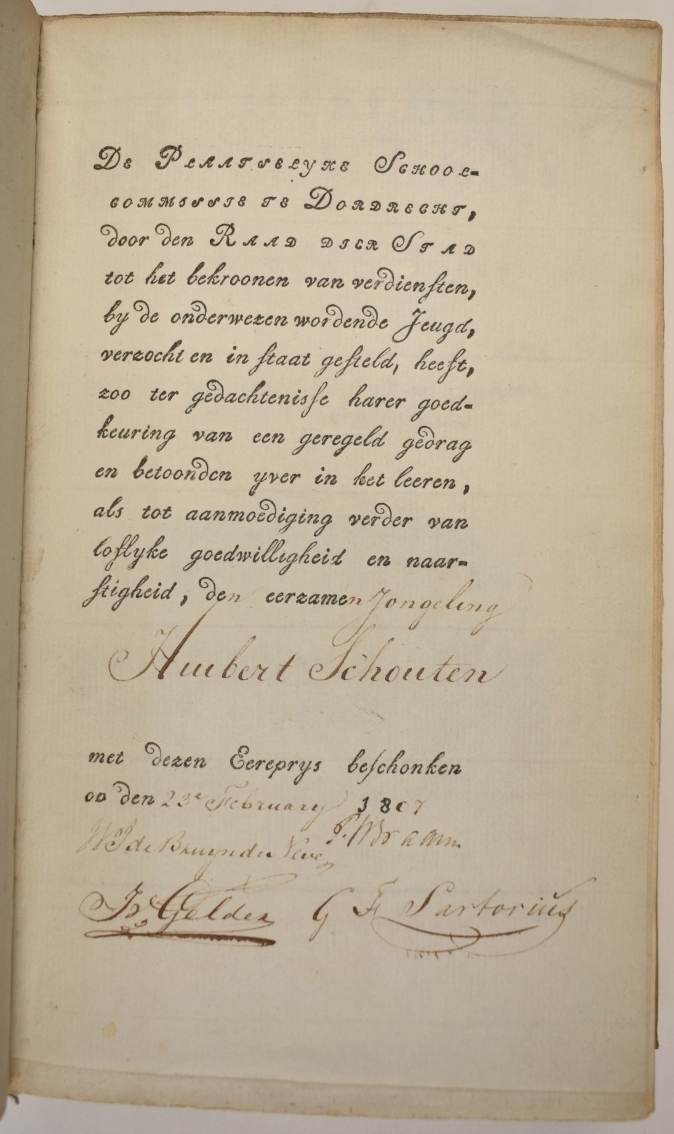 De Plaatselyke School-
commissie te Dordrecht,
door den Raad dier Stad
tot het bekroonen van verdiensten,
by de onderwezen wordende Jeugd,
verzocht en in staat gesteld, heeft,
zoo ter gedachtenisse harer goed-
keuring van een geregeld gedrag
en betoonden yver in het leeren,
als tot aanmoediging verder van
loflyke goedwilligheid en naar-
stigheid, den eerzamen Jongeling
Huibert Schouten
met dezen Eereprys beschonken
op den 23e February 1807
de Bruyn de Neve
P. Braam
Gelder G F Sartorius